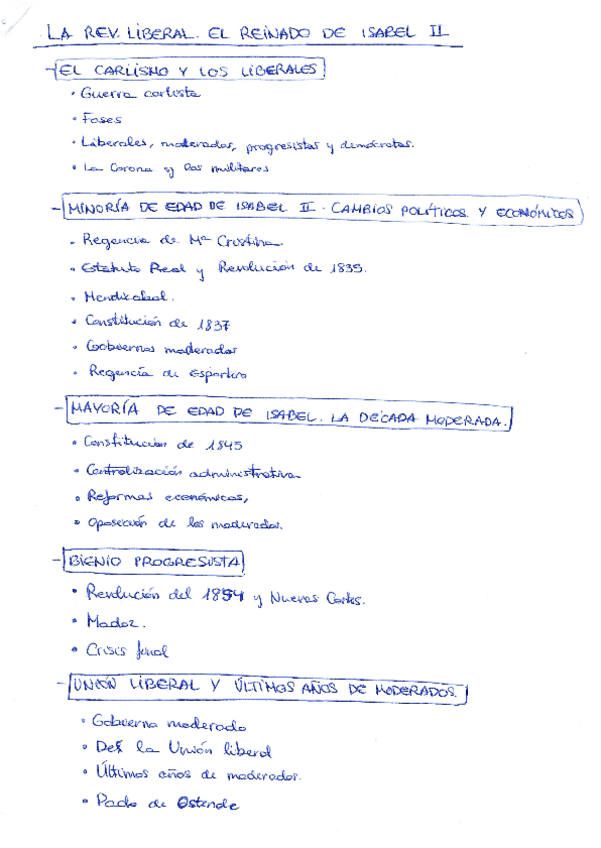 LA REV. LIBERAL. EL REINADO DE ISABEL II
- EL CARLISMO Y LOS LIBERALES
• Guerra carlista
• Fases
• Liberales, moderados, progresistas y demócratas.
• La Corona y los militares
- MINORÍA DE EDAD DE ISABEL II. CAMBIOS POLÍTICOS Y ECONÓMICOS
• Regencia de Mª Cristina.
• Estatuto Real y Revolución de 1835.
• Mendizabal.
• Constitución de 1837
• Gobiernos moderados
• Regencia de Espartero
- MAYORÍA DE EDAD DE ISABEL. LA DÉCADA MODERADA.
• Constitución de 1845
• Centralización administrativa
• Reformas económicas,
• Oposición de los moderados.
- BIENIO PROGRESISTA
• Revolución del 1854 y Nuevas Cortes.
• Madoz.
• Crisis final
- UNIÓN LIBERAL Y ÚLTIMOS AÑOS DE MODERADOS.
• Gobierno moderado
• De la Unión liberal
• Últimos años de moderados.
• Pacto de Ostende